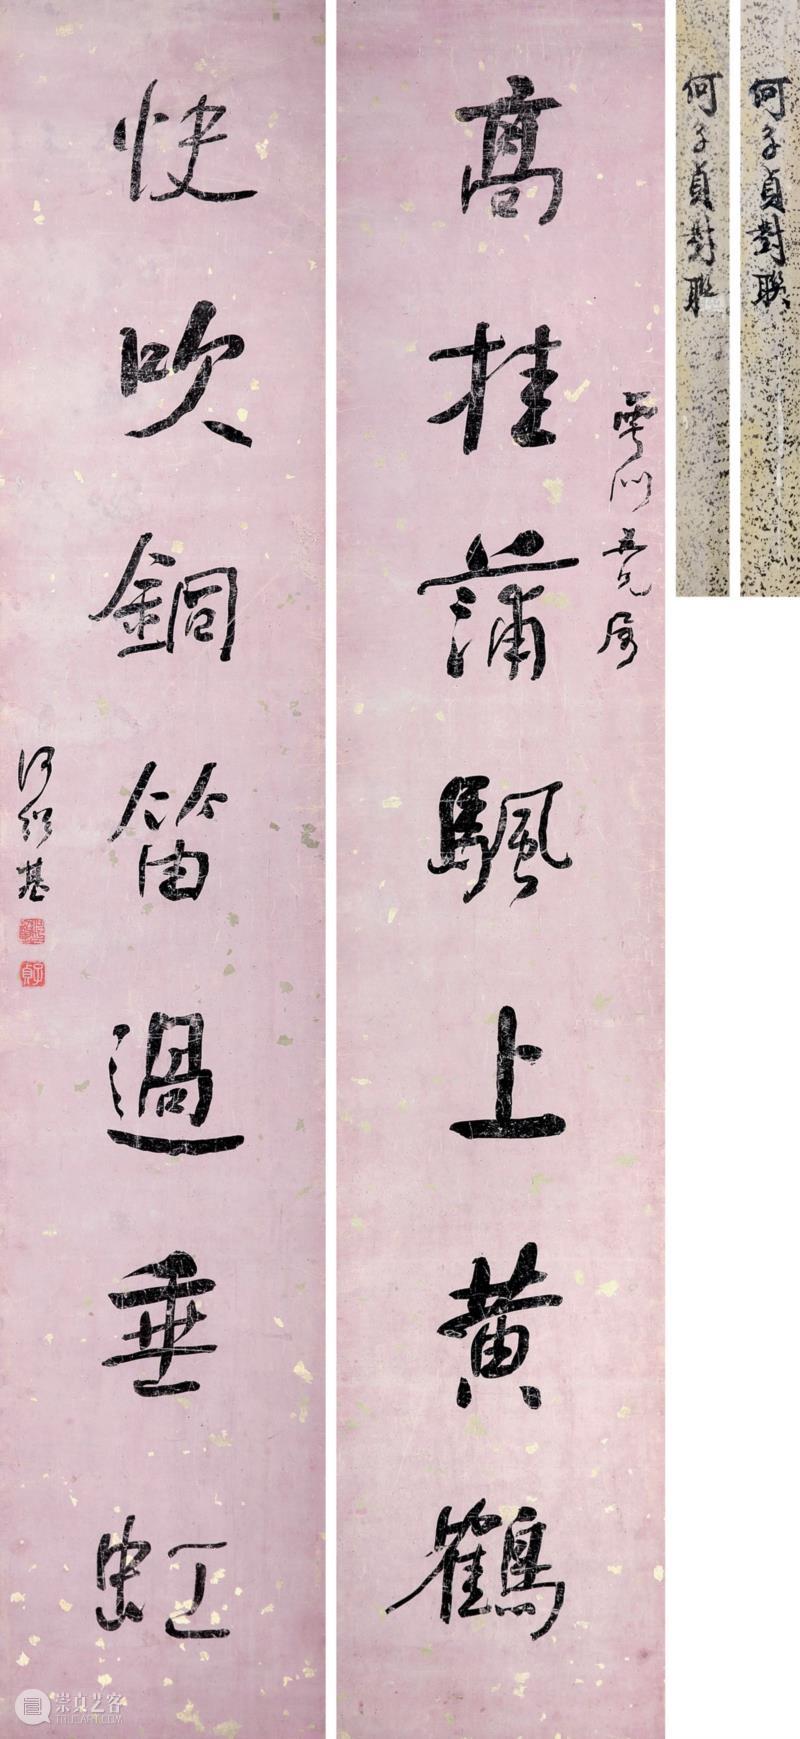 何子貞對聯
何子貞對聯
高挂蒲颿上黄鶴
雲門五兄屬
快吹銅笛過垂虹
何紹基
子貞
崇真艺客
TRUEART.COM